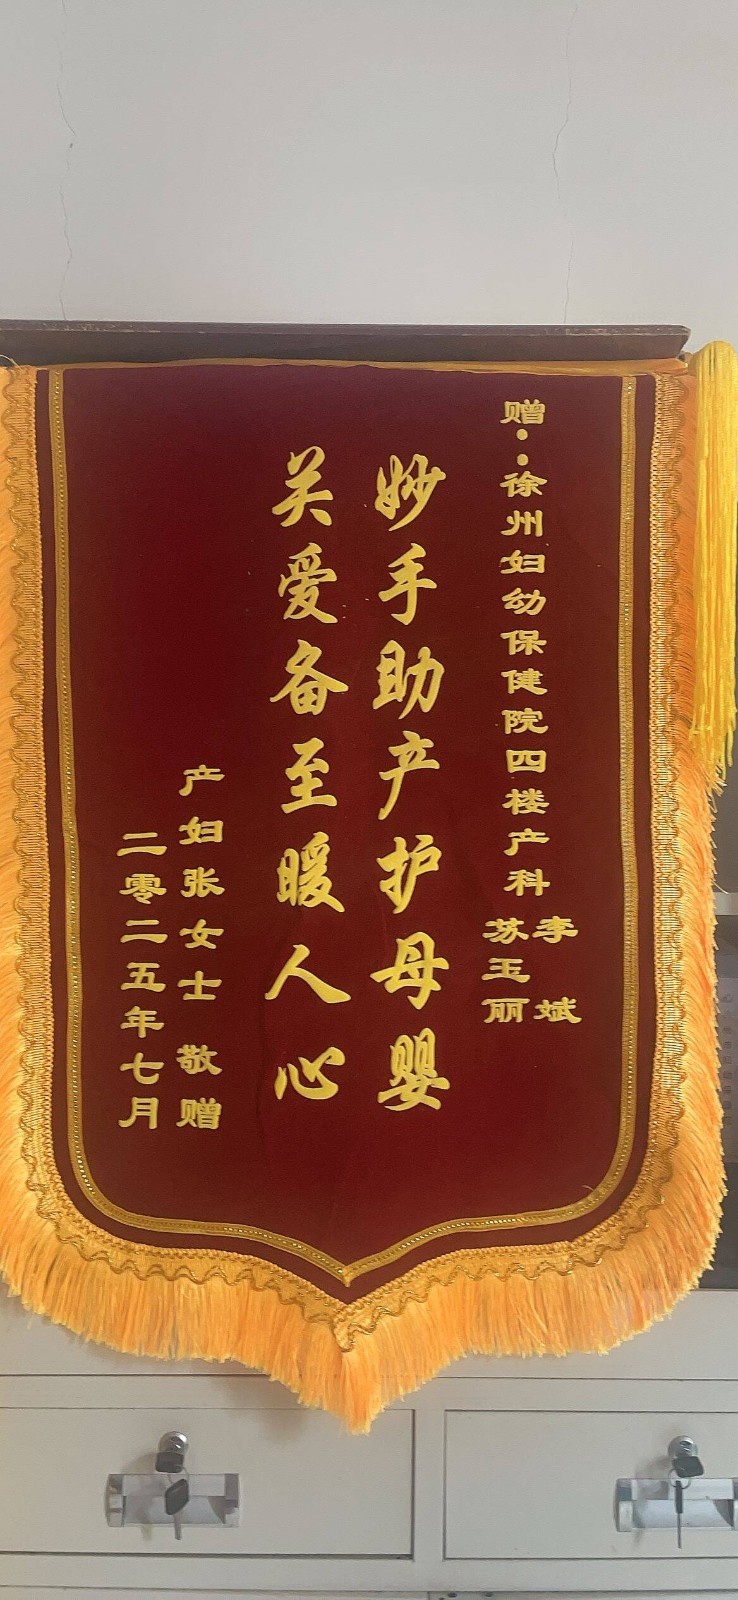 赠：徐州妇幼保健院四楼产科
李斌
苏玉丽
妙手助产护母婴
关爱备至暖人心
产妇张女士 敬赠
二零二五年七月